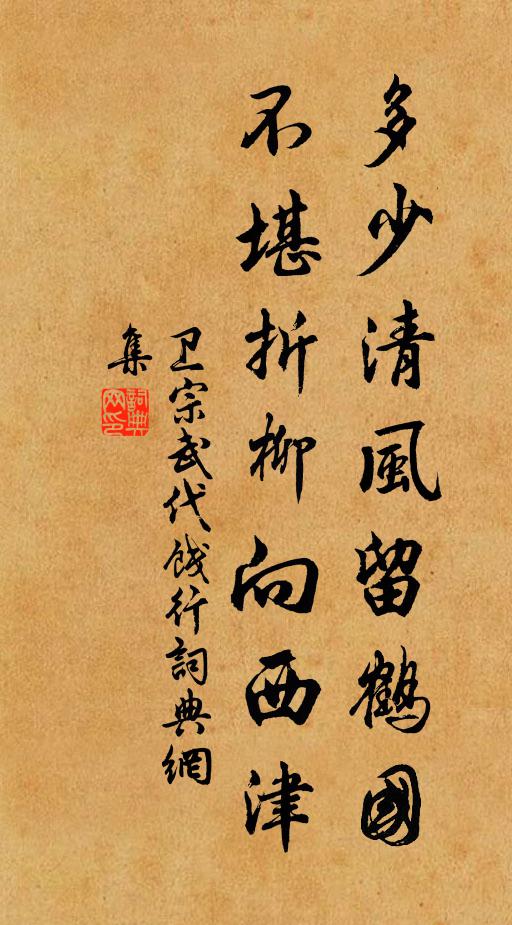 多少清風留鶴國
不堪折柳向西津
卫宗武代餞行詞典網
集
詞典网印